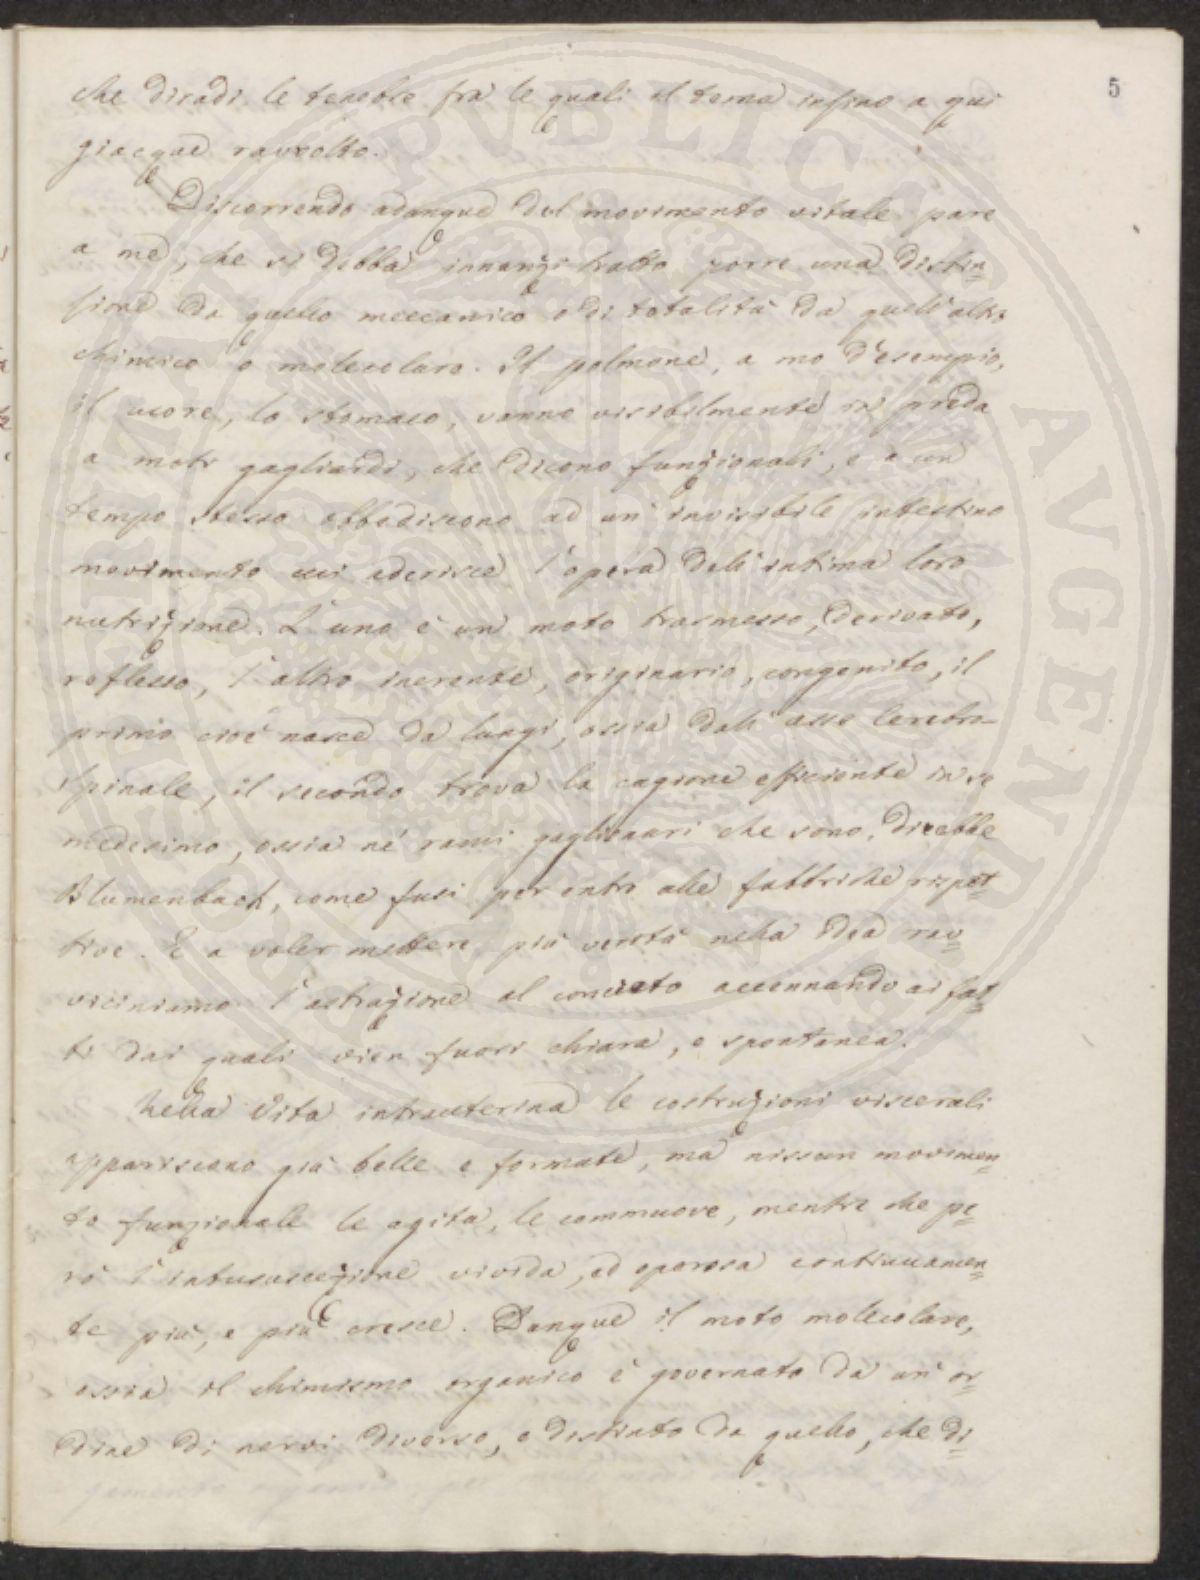 5
che diradi le tenebre frà le quali il tema infino a qui
giacque ravvolto.
Discorrendo adunque del movimento vitale pare
a me, che si debba innanzi tratto porre una distin=
zione da quello meccanico o di totalità da quell'altro
chimico o molecolare. Il polmone, a mo d'esempio,
il cuore, lo stomaco, vanno visibilmente in preda
a moti gagliardi, che dicono funzionali, e a un
tempo stesso obbediscono ad un invisibile intestino
movimento cui aderisce l'opera dell'intima loro
nutrizione. L'uno è un moto trasmesso, derivato,
reflesso, l'altro inerente, originario, congenito, il
primo cioè nasce da lungi, ossia dall'asse Cerebro-
Spinale, il secondo trova la cagione efficiente in se
medesimo, ossia né rami gaglionari che sono, direbbe
Blumenbach, come fusi per entro alle fabbriche rispet=
tive. E a voler mettere più verità nella idea rav=
viciniamo l'astrazione al concreto accennando ai fat=
ti dai quali vien fuori chiara, e spontanea.
Nella Vita intrauterina le costruzioni viscerali
appariscono già belle e formate, ma nissun movimen=
to funzionale le agita, le commuove, mentre che pe=
rò l'intususcezione vivida, ed operosa continuamen=
te più, e più cresce. Dunque il moto molecolare,
ossia il chimismo organico è governato da un or=
dine di nervi diverso, e distinto da quello, che di=
PERIAT PUBLICAE AUGENDAE